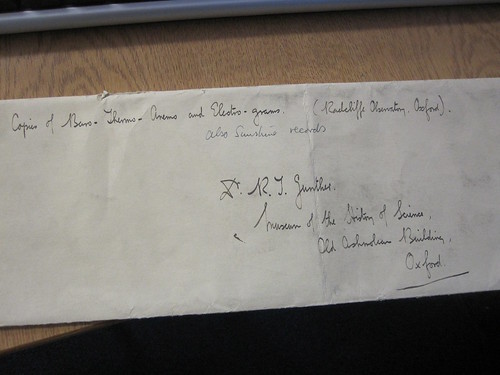 Copies of Baro-Thermo-Anemo and Electro-grams. (Radcliffe Observatory, Oxford).
also Sunshine records
Dr. R. T. Gunther.
Museum of the History of Science,
Old Ashmolean Building,
Oxford.